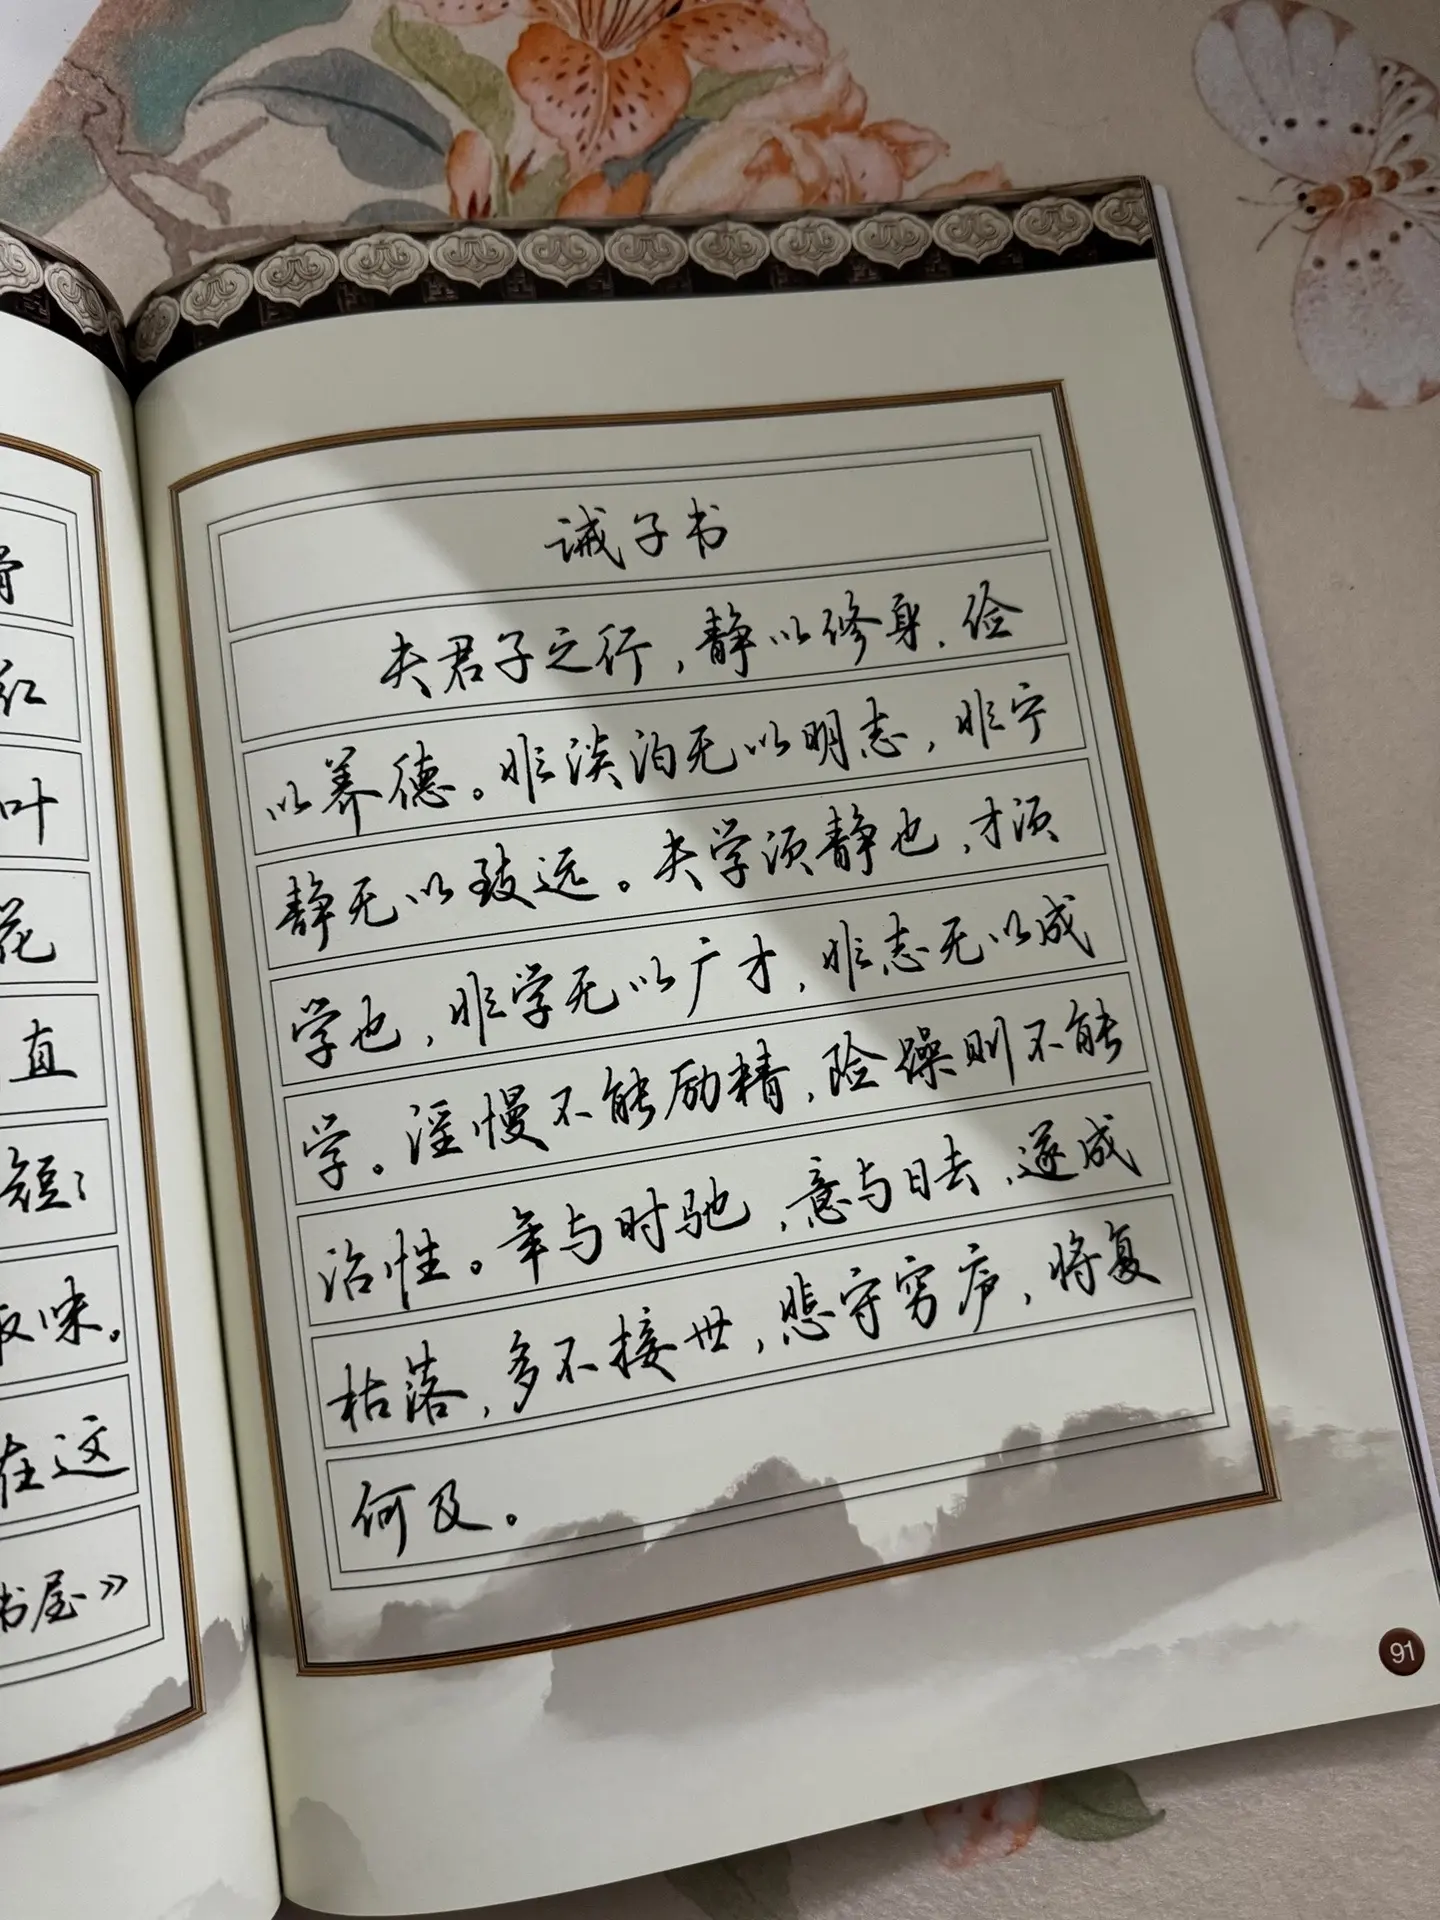 骨
红
叶
花
直
短；
取味。
在这
书屋》
诫子书
夫君子之行，静以修身，俭
以养德。非淡泊无以明志，非宁
静无以致远。夫学须静也，才须
学也，非学无以广才，非志无以成
学。淫慢不能励精，险躁则不能
治性。年与时驰，意与日去，遂成
枯落，多不接世，悲守穷庐，将复
何及。
91